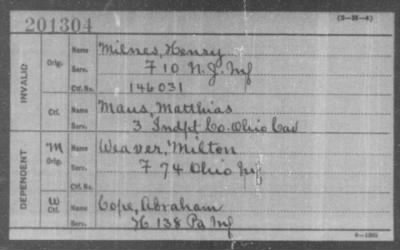 201304 (3-38-4)
INVALID
Orig. Name Milnes, Henry
Serv. F 10 N.J. Inf
Ctf. No. 146031
Ctf. Name Maus, Matthias
Serv. 3 Indpt Co. Ohio Cav
DEPENDENT
M Orig. Name Weaver, Milton
Serv. F 74 Ohio Inf
Ctf. No.
W Ctf. Name Cope, Abraham
Serv. H 138 Pa Inf